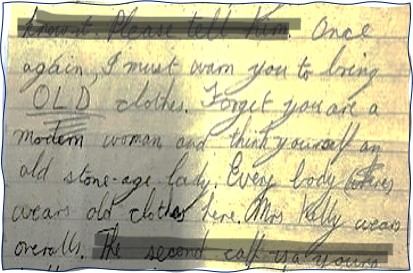 known it. Please tell him. Once
again, I must warn you to bring
OLD clothes. Forget you are a
modern woman and think yourself an
old stone-age lady. Every body
wears old clothes here. Mrs Kelly wears
overalls. The second calf is a yours